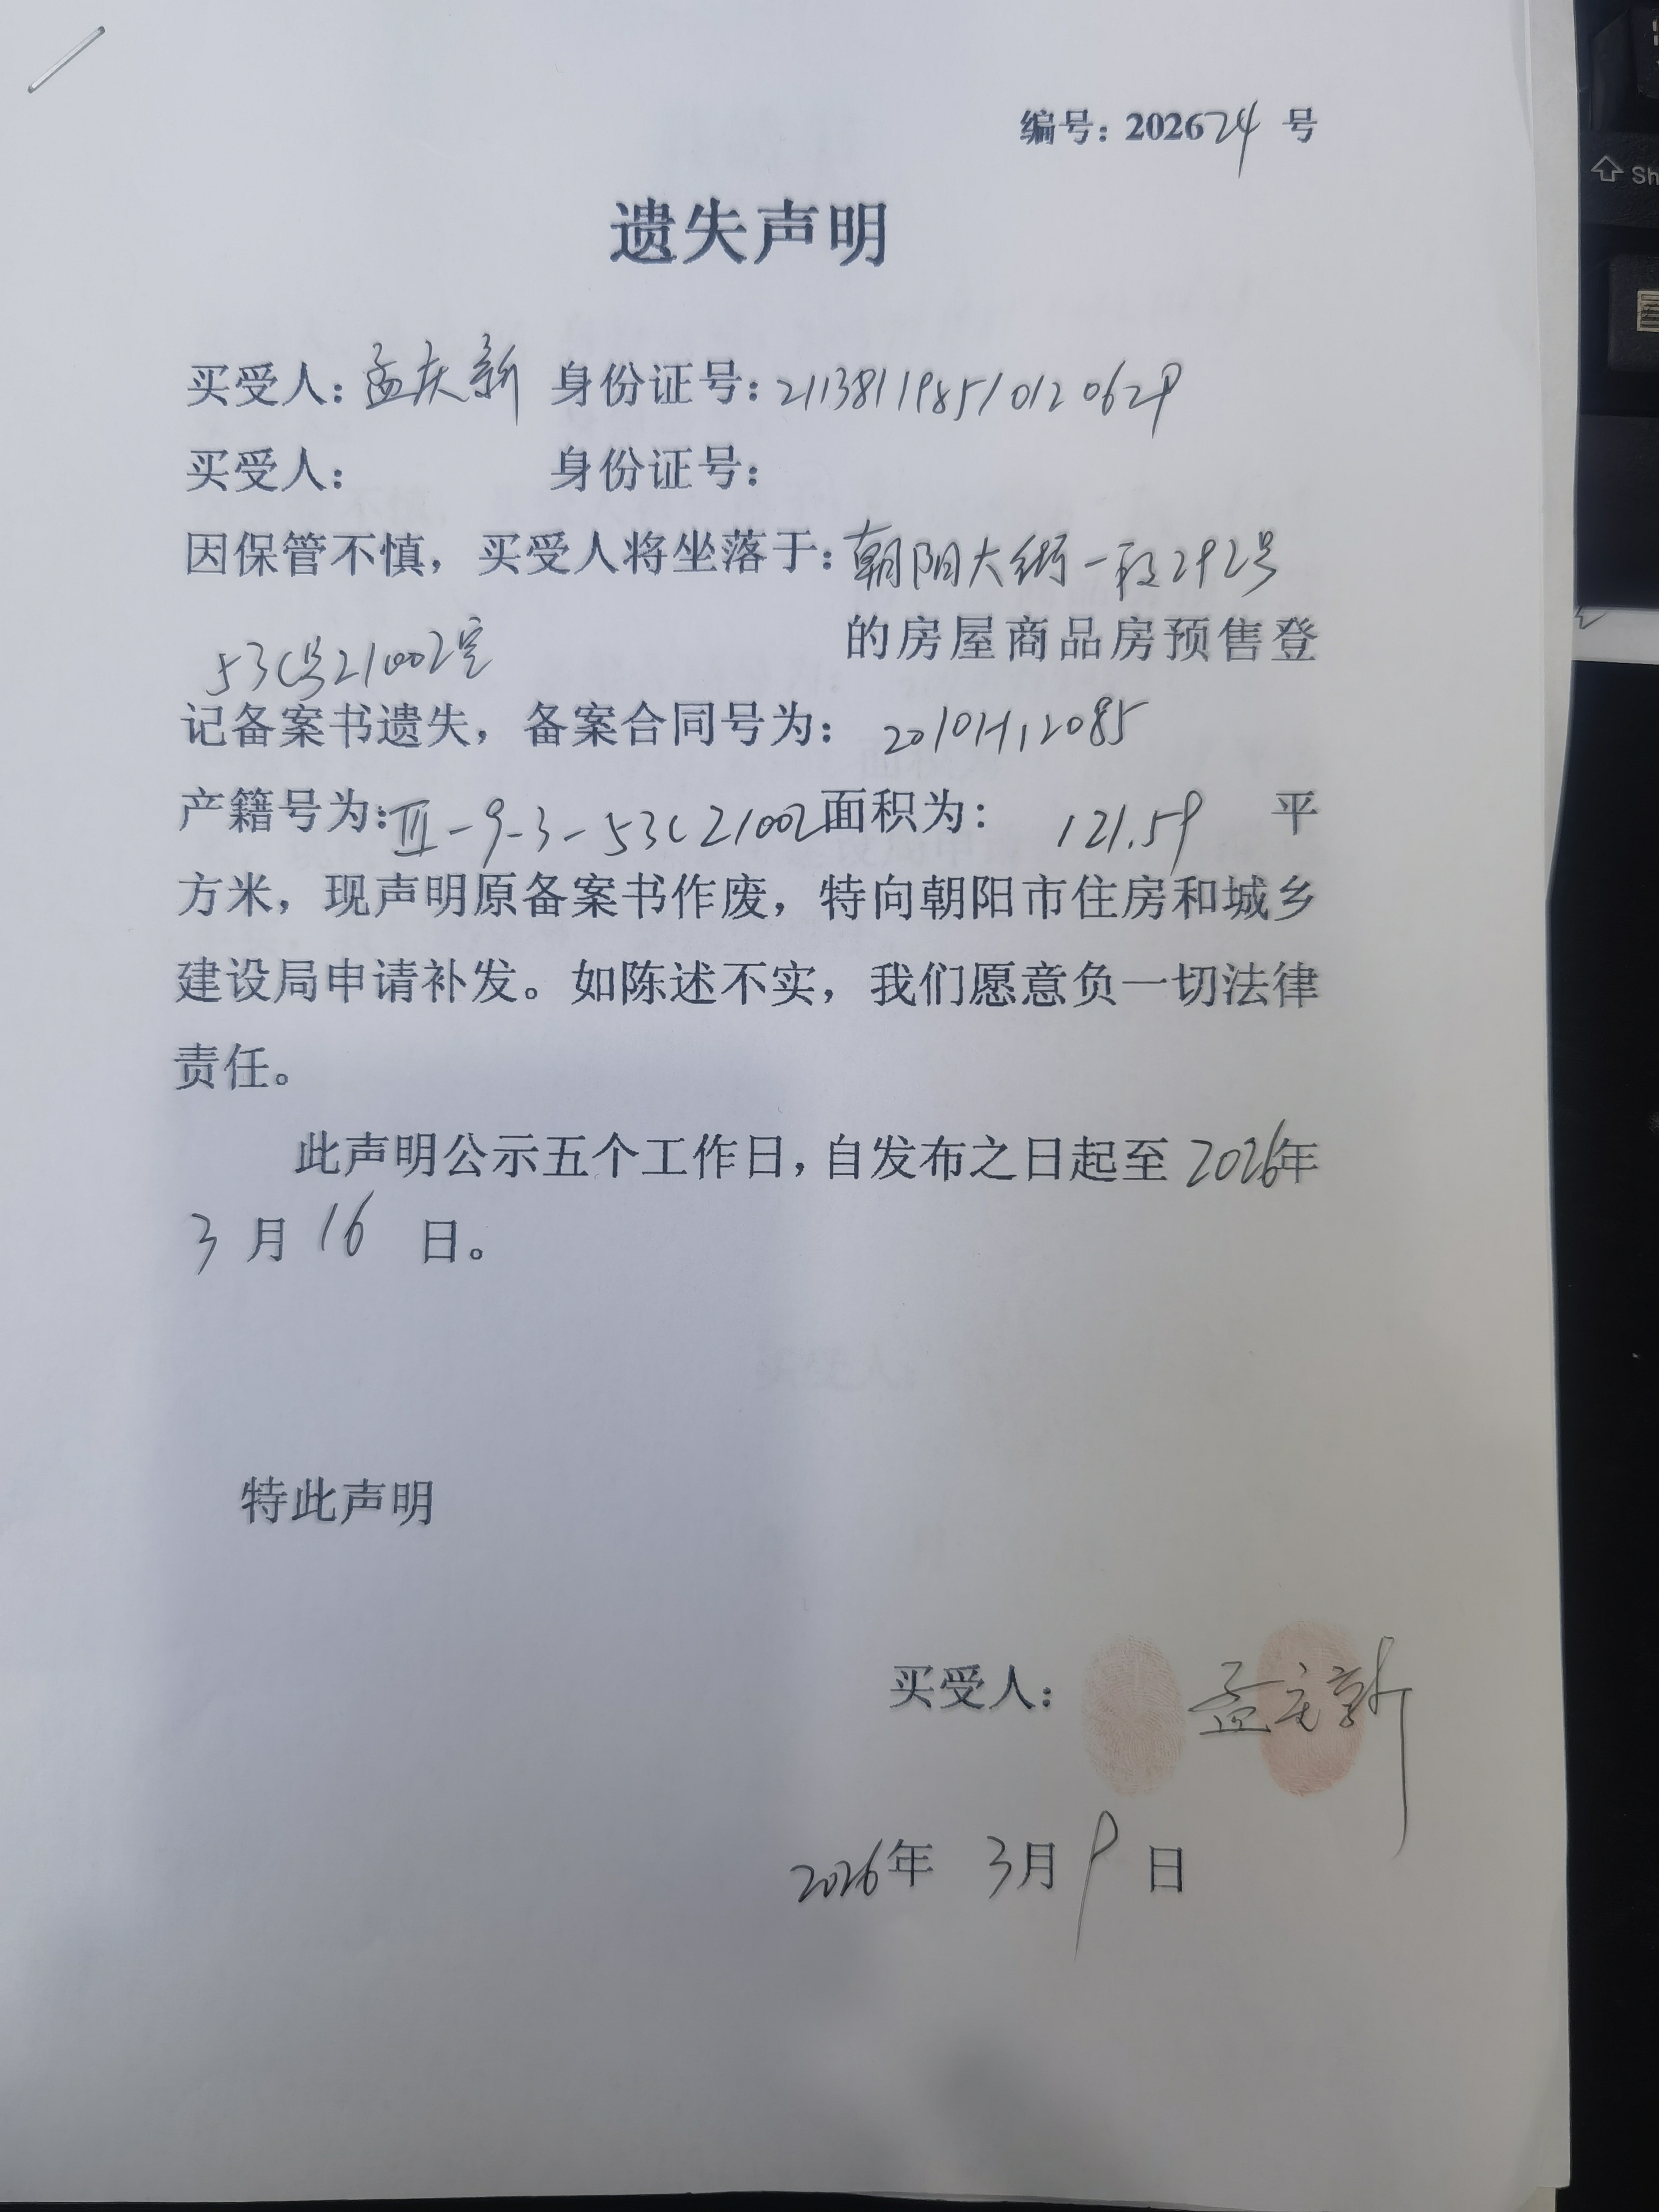 编号：202624 号
遗失声明
买受人：孟庆新 身份证号：211381198510120629
买受人： 身份证号：
因保管不慎，买受人将坐落于：朝阳大街一段292号
53C号21002室 的房屋商品房预售登
记备案书遗失，备案合同号为： 2010H12085
产籍号为：Ⅲ-9-3-53C21002面积为： 121.59 平
方米，现声明原备案书作废，特向朝阳市住房和城乡
建设局申请补发。如陈述不实，我们愿意负一切法律
责任。
此声明公示五个工作日，自发布之日起至 2026年
3 月 16 日。
特此声明
买受人： 孟庆新
2026年 3月 9 日